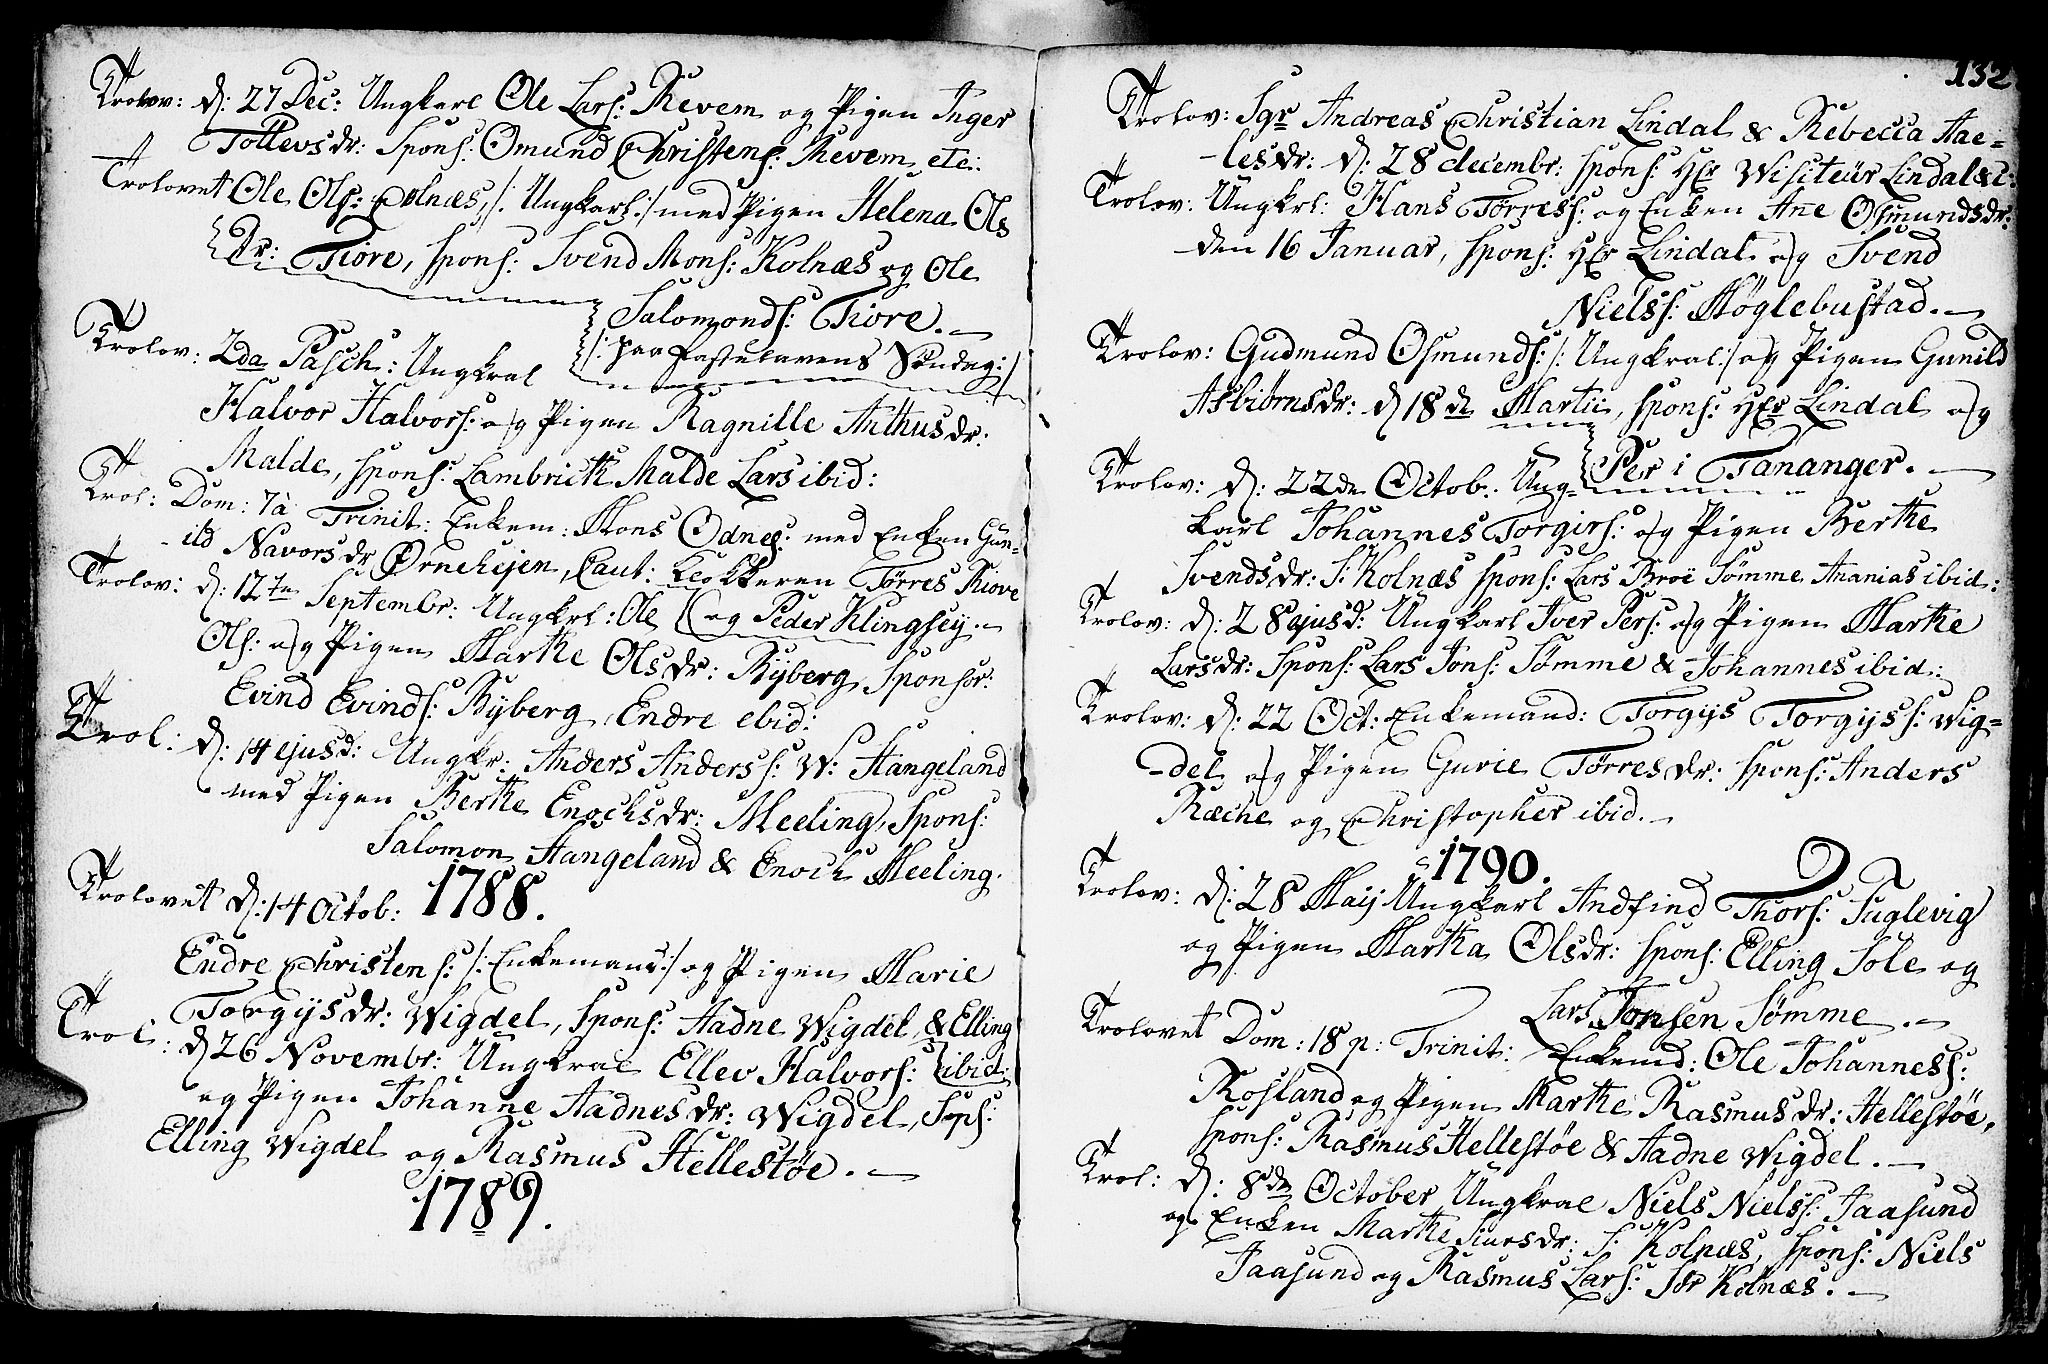 Trolov: d: 27 Dec: Ungkarl Ole Lars: Revem og Pigen Inger
Tollevsdr: Spons: Omund Christens: Revem etc:
Trolovet Ole Ols: Colnæs, /: Ungkarl :/ med Pigen Helena Ols
Dr: Tiore, spons: Svend Mons: Kolnæs og Ole
Salomonds: Tiore. —
/: paa Fastelavens Søndag :/
Trolov: 2da Pasch: Ungkral
Halvor Halvors: og Pigen Ragnille Anthusdr:
Malde, spons: Lambrick Malde Lars ibid:
Trol: Dom: 7à Trinit: Enkem: Mons Odnes: med Enken Gun-
ild Navorsdr Ørnehejen, Caut: Klokkeren Tørres Kiore
og Peder Klingsey. —
Trolov: d: 12te Septembr: Ungkrl: Ole
Ols: og Pigen Marthe Olsdr: Ryberg, Sponsor:
Evind Evinds: Ryberg, Endre ebid:
Trol: d: 14 ejusd: Ungkr: Anders Anderss: W: Hangeland
med Pigen Berthe Enochsdr: Meeling, Spons:
Salomon Hangeland & Enoch Meeling.
1788.
Trolovet d: 14 Octob:
Endre Christens: /: Enkemand :/ og Pigen Marie
Torgysdr: Wigdel, Spons: Aadne Wigdel & Elling
ibid:
Trol: d 26 Novembr: Ungkral Ellev Halvors:
og Pigen Johanne Aadnesdr: Wigdel, Sps:
Elling Wigdel og Rasmus Hellestøe. —
1789.
132
Trolov: Sgr Andreas Christian Lindal & Rebecca Aae=
lesdr: d: 28 decembr: spons: Hr Wisiteur Lindal &c:
Trolov: Ungkrl: Hans Tørress: og Enken Ane Osmundsdr:
den 16 Januar, spons: Hr Lindal og Svend
Nielss: Høglebustad. —
Trolov: Gudmund Osmunds: /: Ungkral :/ og Pigen Gunild
Asbiörnsdr: d 18de Martii, spons: Hr Lindal og
Per i Tananger. —
Trolov: d: 22de Octob: Ung-
karl Johannes Torgirs: og Pigen Berthe
Svendsdr: S: Kolnæs spons: Lars Broe Sømme Ananias ibid:
Trolov: d: 28 ejusd: Ungkarl Iver Pers: og Pigen Marthe
Larsdr: Spons: Lars Jons: Sømme & Johannes ibid:
Trolov: d: 22 Oct: Enkemand: Torgys Torgyss: Wig=
del og Pigen Gurie Tørresdr: spons: Anders
Ræche og Christopher ibid. —
1790.
Trolov: d: 28 Maij Ungkarl Andfind Thors: Fuglevig
og Pigen Martha Olsdr: spons: Elling Sole og
Lars Jonsen Sømme. —
Trolovet Dom: 18 p: Trinit: Enkemd: Ole Johanness:
Rosland og Pigen Marthe Rasmusdr: Hellestøe,
spons: Rasmus Hellestøe & Aadne Wigdel. —
Trol: d: 8de October Ungkral Niels Nielss: Jaasund
og Enken Marthe Siursdr: S: Kolnæs, spons: Niels
Jaasund og Rasmus Lars: Sør Kolnæs. —